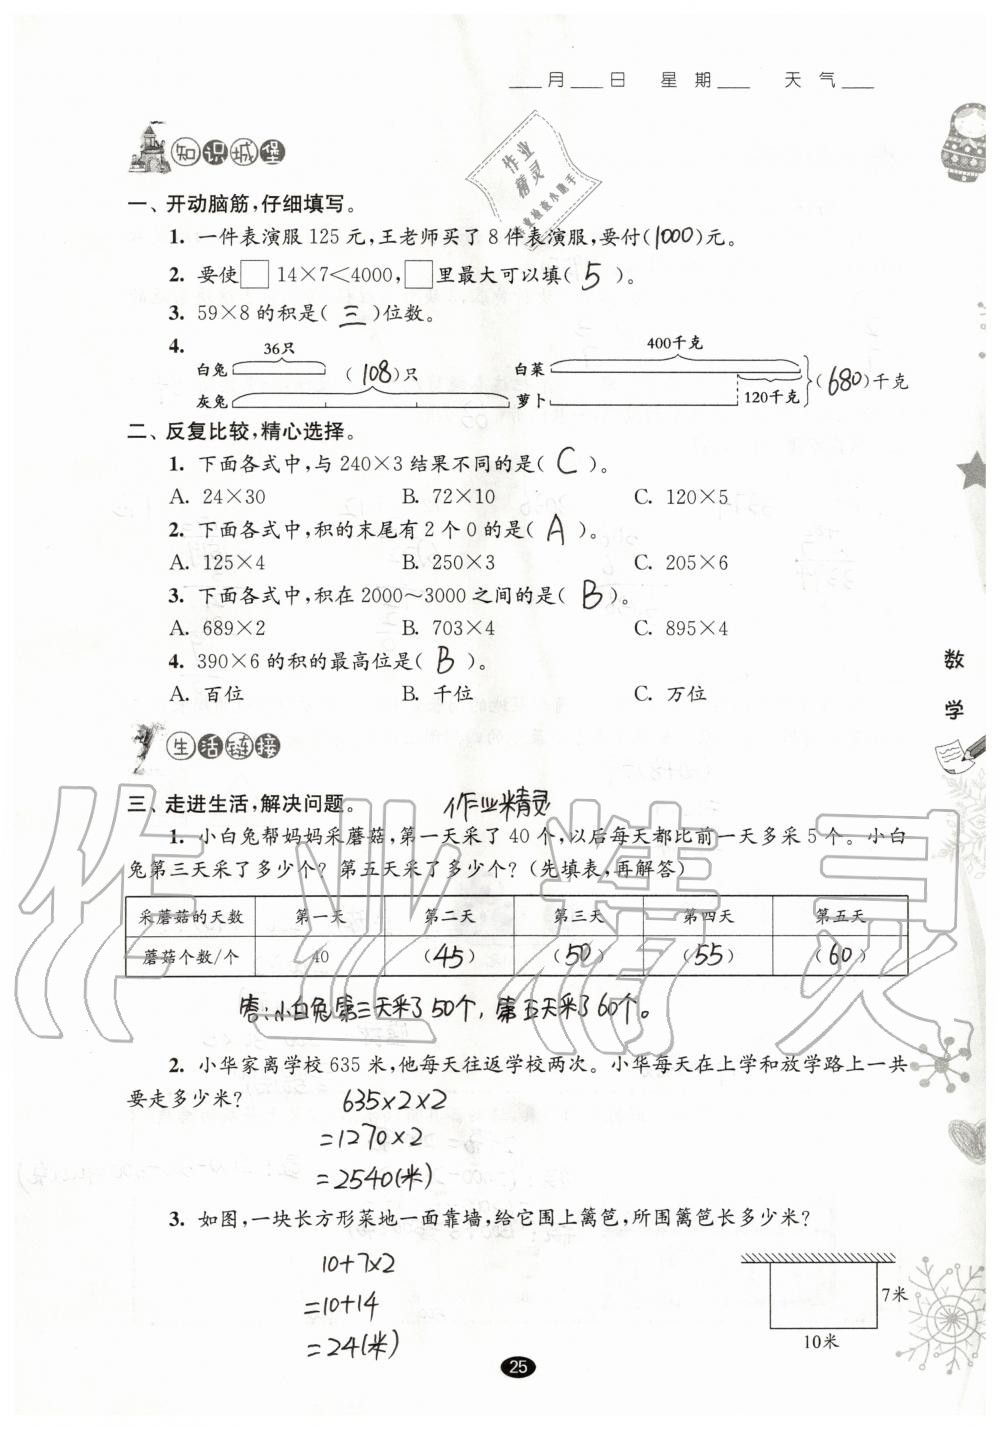 ___月___日 星期___ 天气___
知识城堡
作业
精灵
一、开动脑筋,仔细填写。
1. 一件表演服125元,王老师买了8件表演服,要付(1000)元。
2. 要使□14×7<4000,□里最大可以填( 5 )。
3. 59×8的积是( 三 )位数。
4.
36只
白兔
(108)只
灰兔
400千克
白菜
萝卜
120千克
(680)千克
二、反复比较,精心选择。
1. 下面各式中,与240×3结果不同的是( C )。
A. 24×30 B. 72×10 C. 120×5
2. 下面各式中,积的末尾有2个0的是( A )。
A. 125×4 B. 250×3 C. 205×6
3. 下面各式中,积在2000~3000之间的是( B )。
A. 689×2 B. 703×4 C. 895×4
4. 390×6的积的最高位是( B )。
A. 百位 B. 千位 C. 万位
数学
生活链接
三、走进生活,解决问题。 作业精灵
1. 小白兔帮妈妈采蘑菇,第一天采了40个,以后每天都比前一天多采5个。小白
兔第三天采了多少个?第五天采了多少个?(先填表,再解答)
采蘑菇的天数 第一天 第二天 第三天 第四天 第五天
蘑菇个数/个 40 (45) (50) (55) (60)
作业精灵
答:小白兔第三天采了50个,第五天采了60个。
2. 小华家离学校635米,他每天往返学校两次。小华每天在上学和放学路上一共
要走多少米?
635×2×2
=1270×2
=2540(米)
3. 如图,一块长方形菜地一面靠墙,给它围上篱笆,所围篱笆长多少米?
10+7×2
=10+14
=24(米)
7米
10米
25